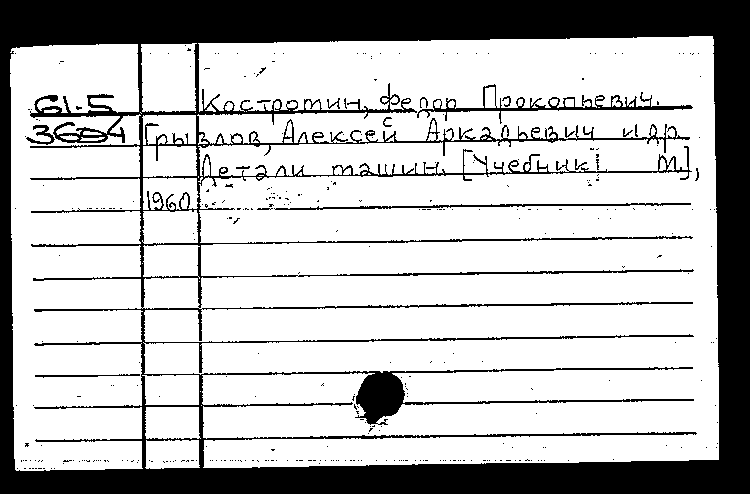 61-5 Костромин, Федор Прокопьевич.
3604 Грызлов, Алексей Аркадьевич и др.
Детали машин. [Учебник] М.],
1960.